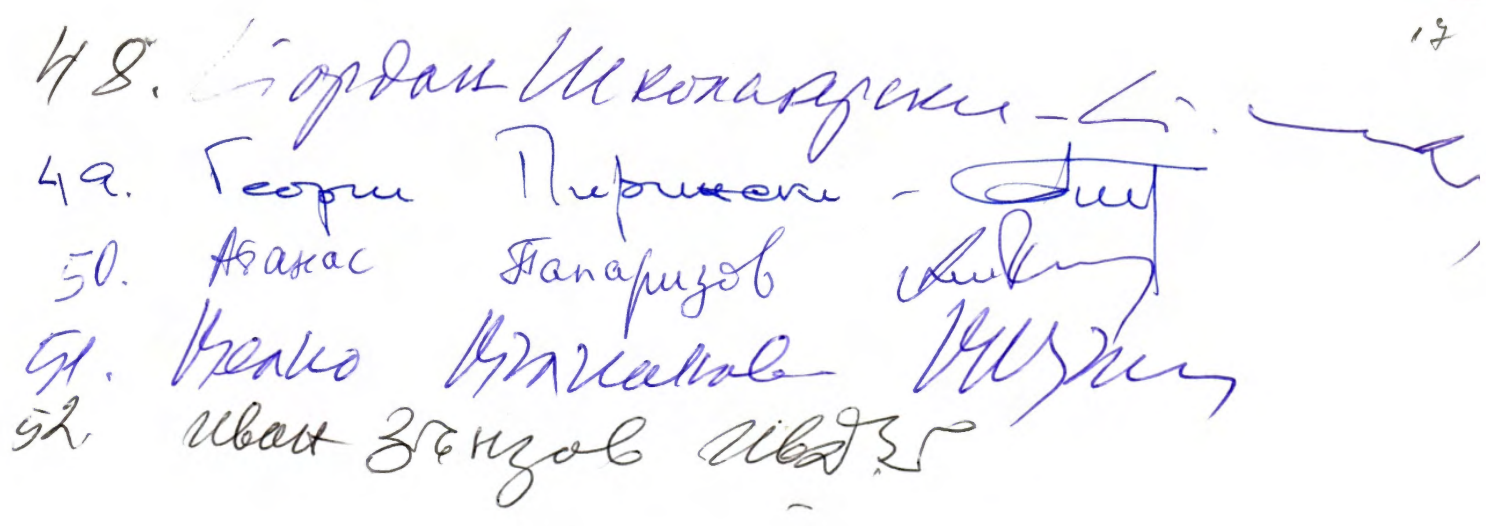 17
48. Йордан Школагерски -
49. Георги Пирински -
50. Атанас Папаризов
51. Велко Вълканов
52. Иван Зънзов